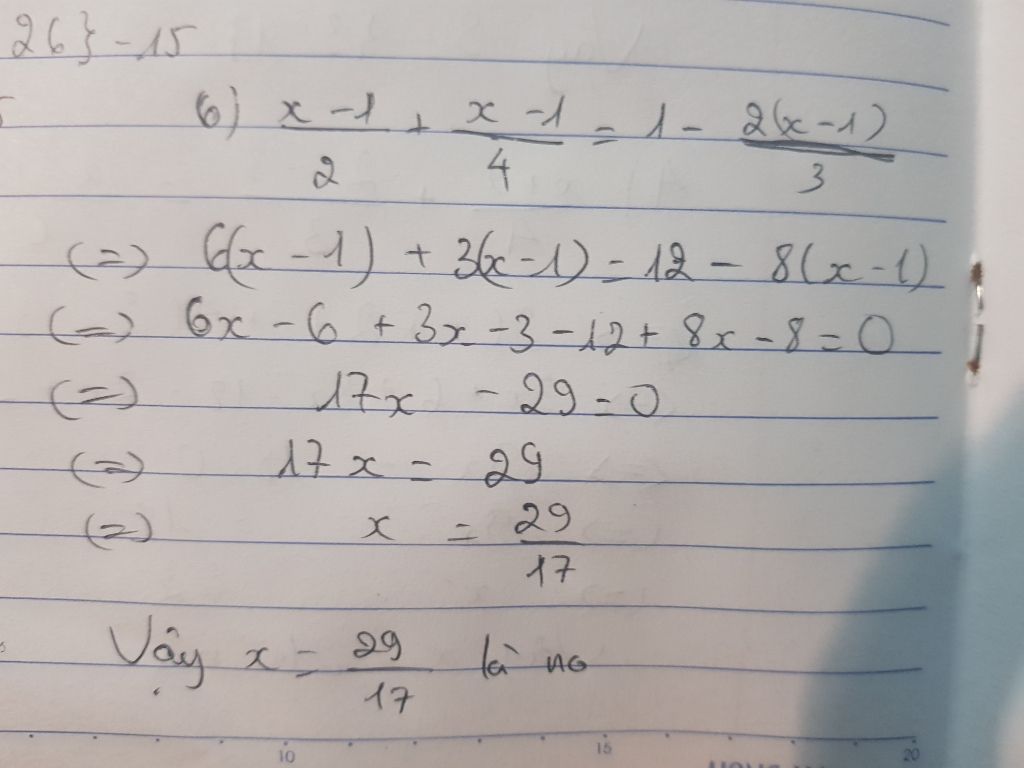 26} - 15
6) x - 1 / 2 + x - 1 / 4 = 1 - 2(x - 1) / 3
(=) 6(x - 1) + 3(x - 1) = 12 - 8(x - 1)
(=) 6x - 6 + 3x - 3 - 12 + 8x - 8 = 0
(=) 17x - 29 = 0
(=) 17x = 29
(=) x = 29 / 17
Vậy x = 29 / 17 là no
10 15 20